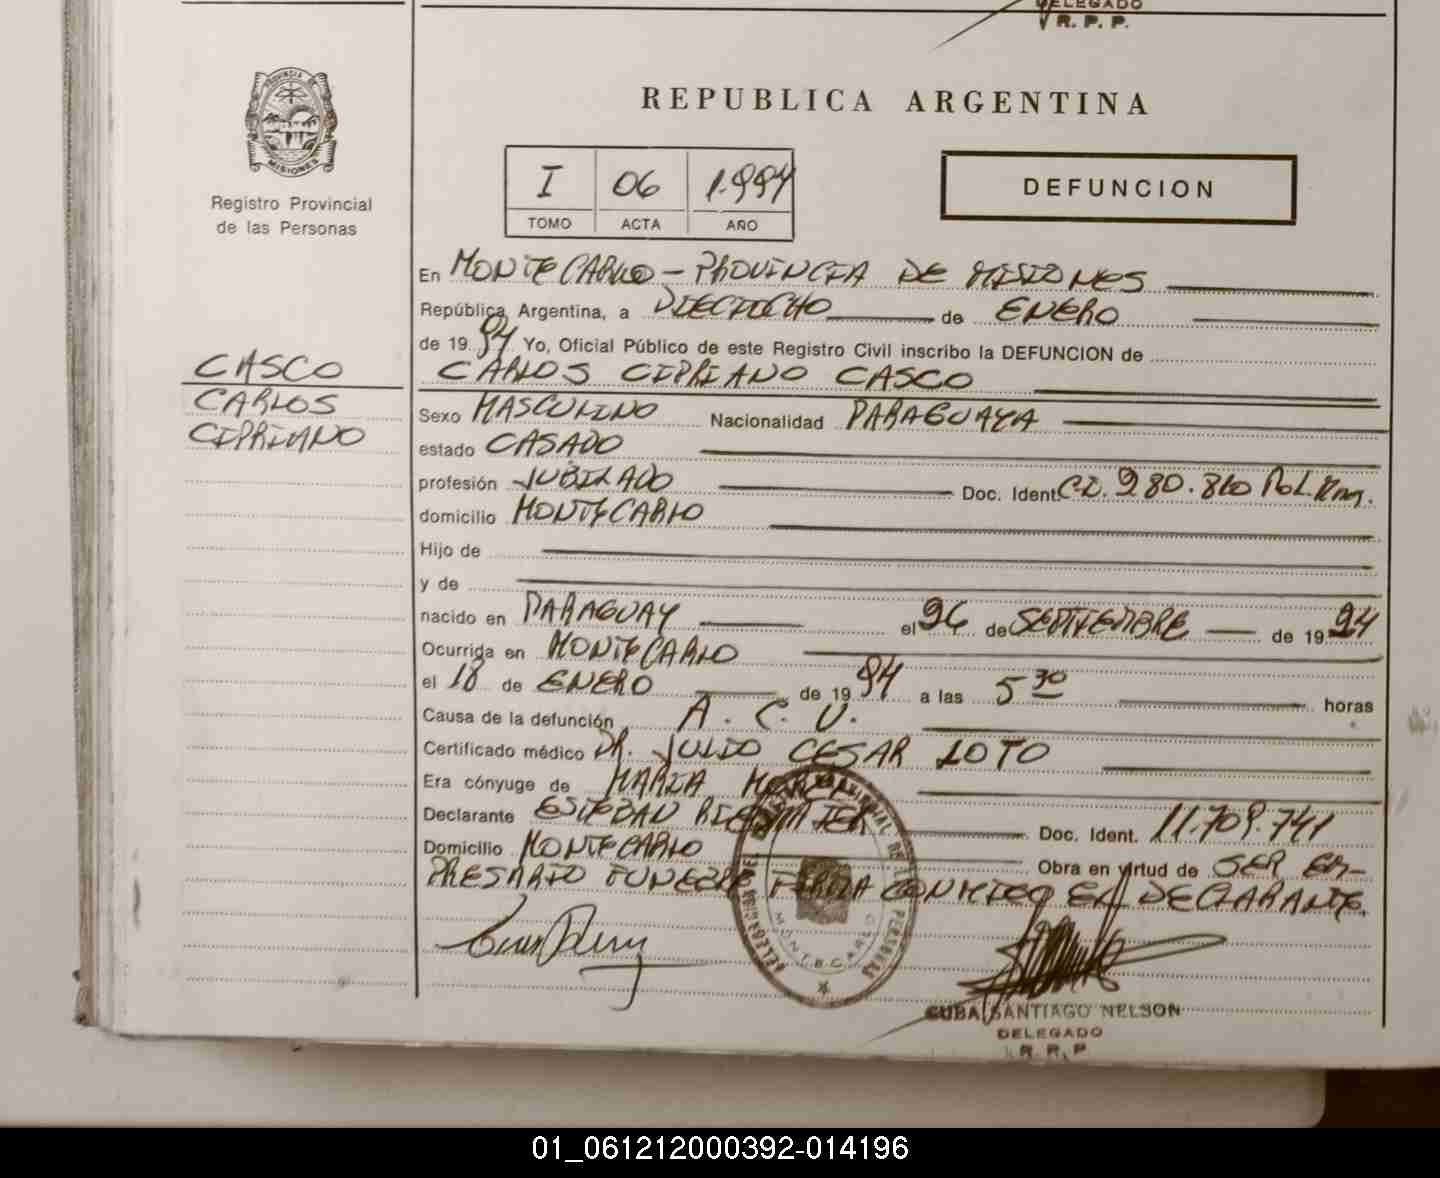 DELEGADO
R. P. P.
PROVINCIA DE
MISIONES
Registro Provincial
de las Personas
REPUBLICA ARGENTINA
I 06 1.994
TOMO ACTA AÑO
DEFUNCION
En MONTECARLO - PROVINCIA DE MISIONES
República Argentina, a DIECIOCHO de ENERO
de 19 94 Yo, Oficial Público de este Registro Civil inscribo la DEFUNCION de
CARLOS CIPRIANO CASCO
CASCO
CARLOS
CIPRIANO
Sexo MASCULINO Nacionalidad PARAGUAYA
estado CASADO
profesión JUBILADO Doc. Ident. C.I. 980.860 Pol.
domicilio MONTECARLO
Hijo de
y de
nacido en PARAGUAY el 26 de SEPTIEMBRE de 19 24
Ocurrida en MONTECARLO
el 18 de ENERO de 19 94 a las 5 30 horas
Causa de la defunción A. C. V.
Certificado médico DR. JULIO CESAR LOTO
Era cónyuge de MARIA
Declarante ESTEBAN Doc. Ident. 11.709.741
Domicilio MONTECARLO Obra en virtud de SER EM-
PRESARIO FUNEBRE FIRMA CONMIGO EL DECLARANTE.
MONTECARLO
CUBA SANTIAGO NELSON
DELEGADO
R. R. P
01_061212000392-014196